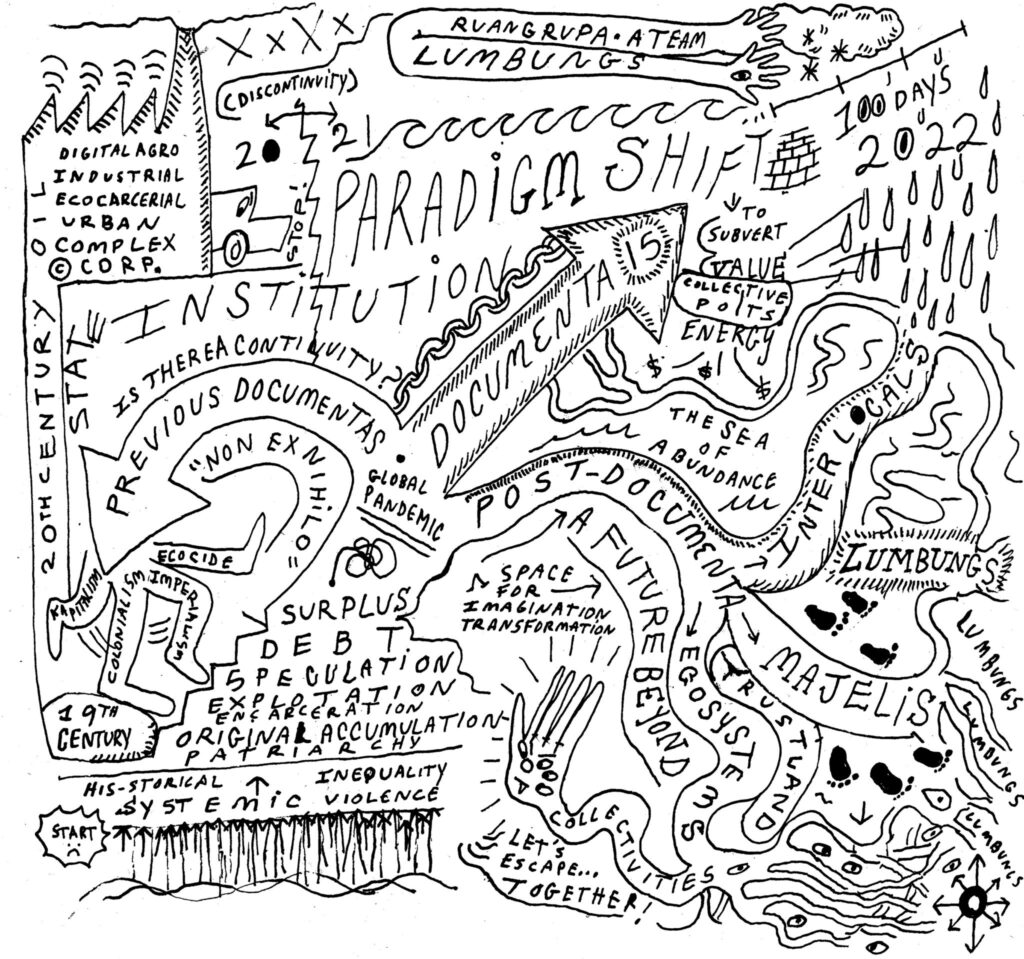 RUANGRUPA • A TEAM
LUMBUNGS
(DISCONTINUITY)
100 DAYS
2022
20
21
STOP!
DIGITAL AGRO
INDUSTRIAL
ECOCARCERIAL
URBAN
COMPLEX
© CORP.
OIL
20TH CENTURY
STATE
PARADIGM SHIFT
INSTITUTION
TO
SUBVERT
VALUE
COLLECTIVE
POITS
ENERGY
$ $ $
DOCUMENTA 15
IS THERE A CONTINUITY?
PREVIOUS DOCUMENTAS
"NON EX NIHILO"
• GLOBAL
PANDEMIC
THE SEA
OF
ABUNDANCE
POST-DOCUMENTA
→ INTERLOCALS
LUMBUNGS
ECOCIDE
KAPITALISM
COLONIALISM
IMPERIALISM
19TH
CENTURY
SURPLUS
DEBT
SPECULATION
EXPLOTATION
ENCARCERATION
ORIGINAL ACCUMULATION
PATRIARCHY
HIS-STORICAL ↑ INEQUALITY
SYSTEMIC VIOLENCE
START
SPACE
FOR
IMAGINATION
TRANSFORMATION
A FUTURE BEYOND
→ EGOSYSTEMS
TRUSTLAND
→ MAJELIS
LUMBUNGS
LUMBUNGS
LUMBUNGS
COLLECTIVITIES
LET'S
ESCAPE...
TOGETHER!